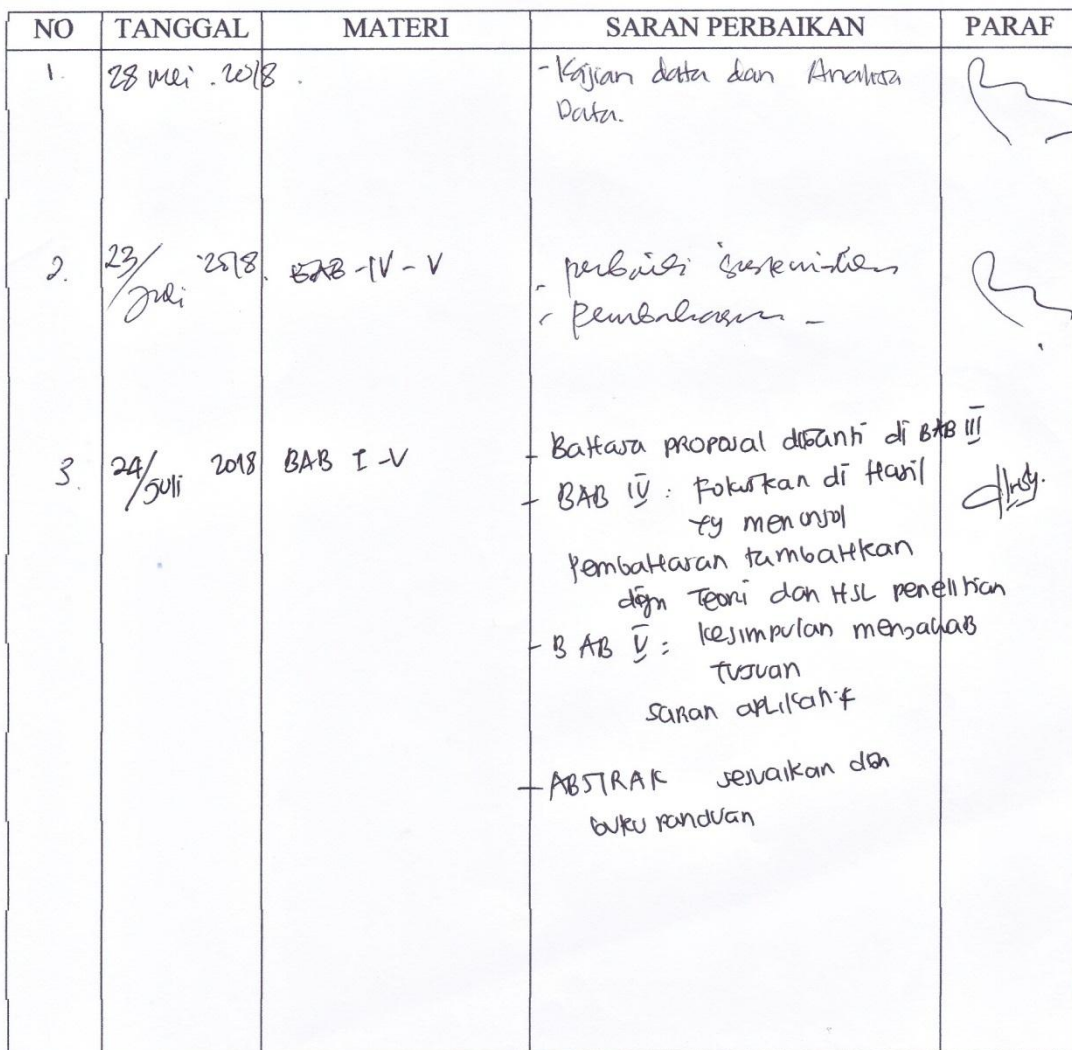 NO TANGGAL MATERI SARAN PERBAIKAN PARAF
1. 28 mei. 2018. - Kajian data dan Analisa
Data.
2. 23/Juli 2018. BAB - IV - V - perbaiki sistematika
- pembahasan -
3. 24/Juli 2018 BAB I - V - Bahasa proposal diganti di BAB III
- BAB IV : Fokuskan di Hasil
yg menonjol
pembahasan tambahkan
dgn Teori dan HSL penelitian
- BAB V : kesimpulan menjawab
tujuan
saran aplikatif
- ABSTRAK sesuaikan dgn
buku panduan